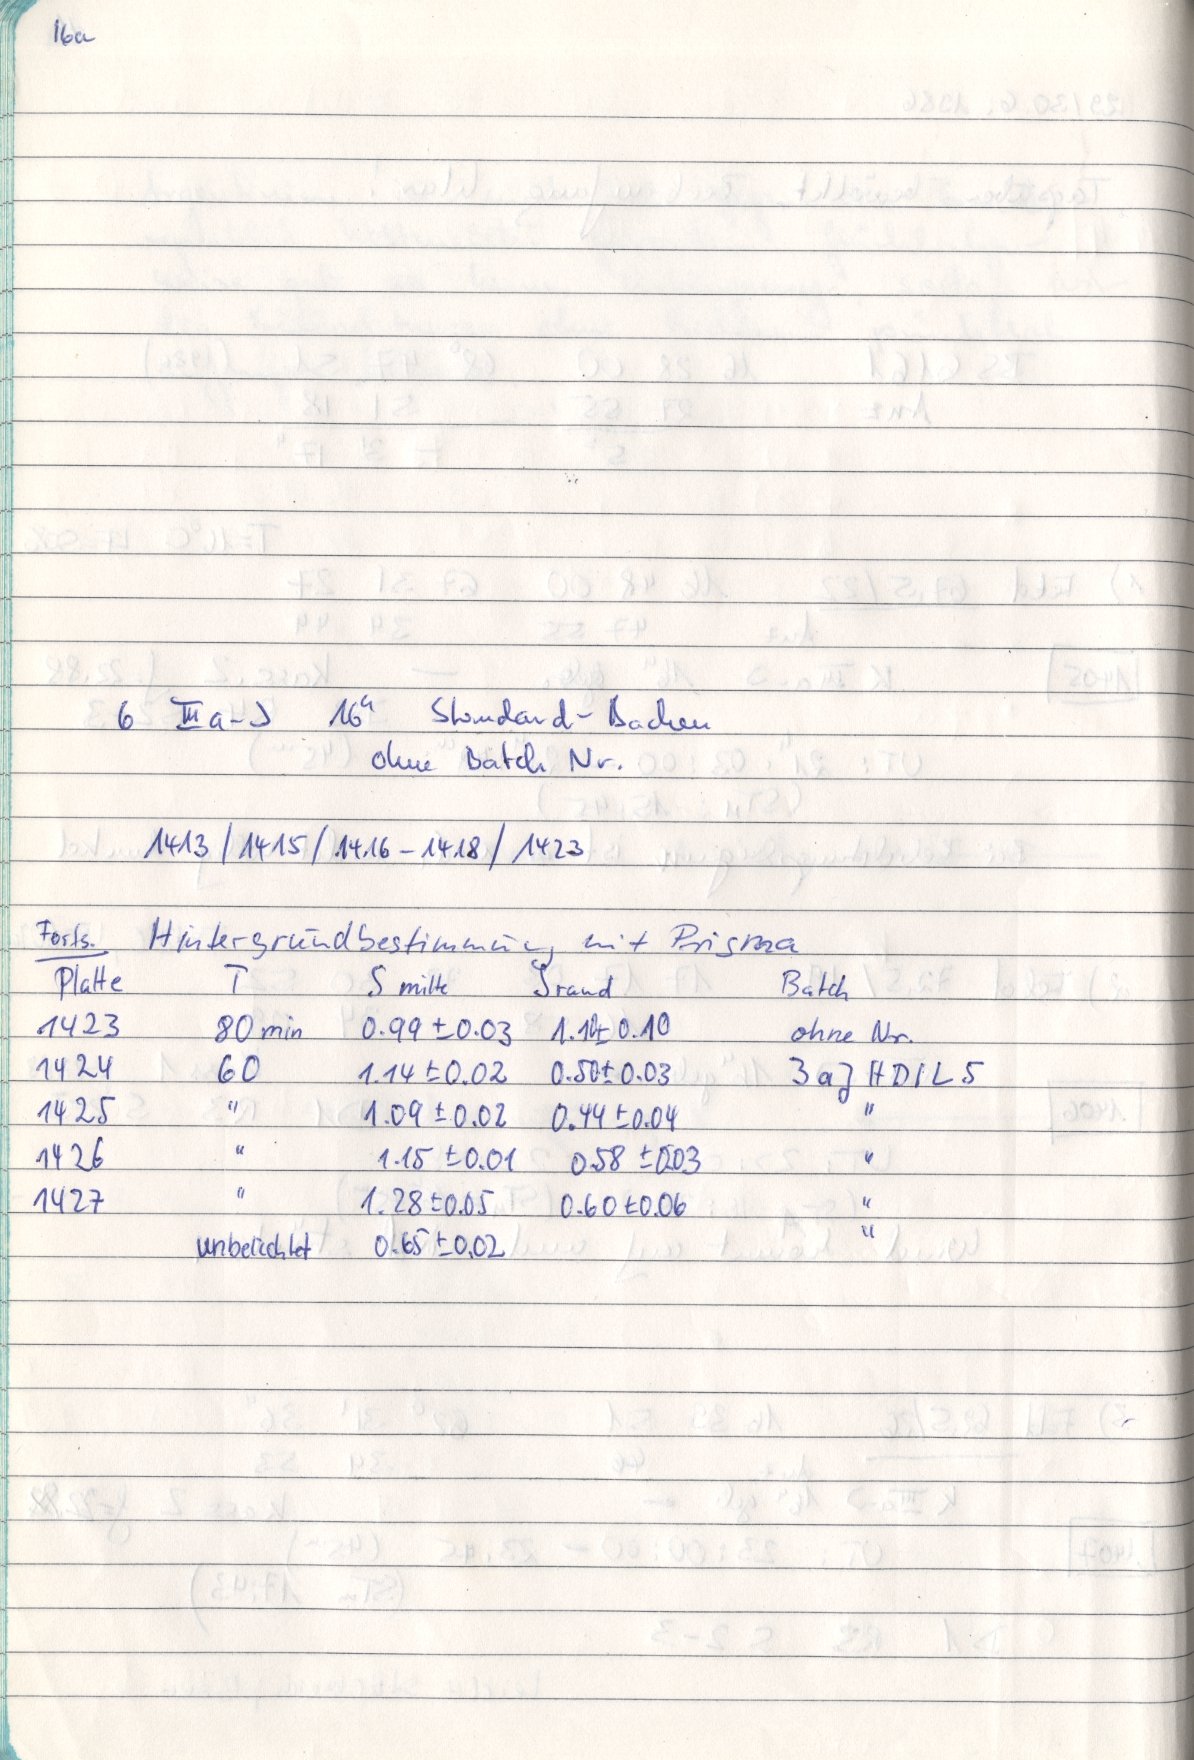 16a
6 IIIa-J 16h Standard-Backen
ohne Batch Nr.
1413 / 1415 / 1416 - 1418 / 1423
Forts. Hintergrundbestimmung mit Prisma
Platte T S mitte S rand Batch
1423 80 min 0.99 ± 0.03 ± 0.10 ohne Nr.
1424 60 1.14 ± 0.02 0.50 ± 0.03 3aJ HD1L5
1425 " 1.09 ± 0.02 0.44 ± 0.04 "
1426 " 1.15 ± 0.01 0.58 ± 0.03 "
1427 " 1.28 ± 0.05 0.60 ± 0.06 "
unbelichtet 0.65 ± 0.02 "